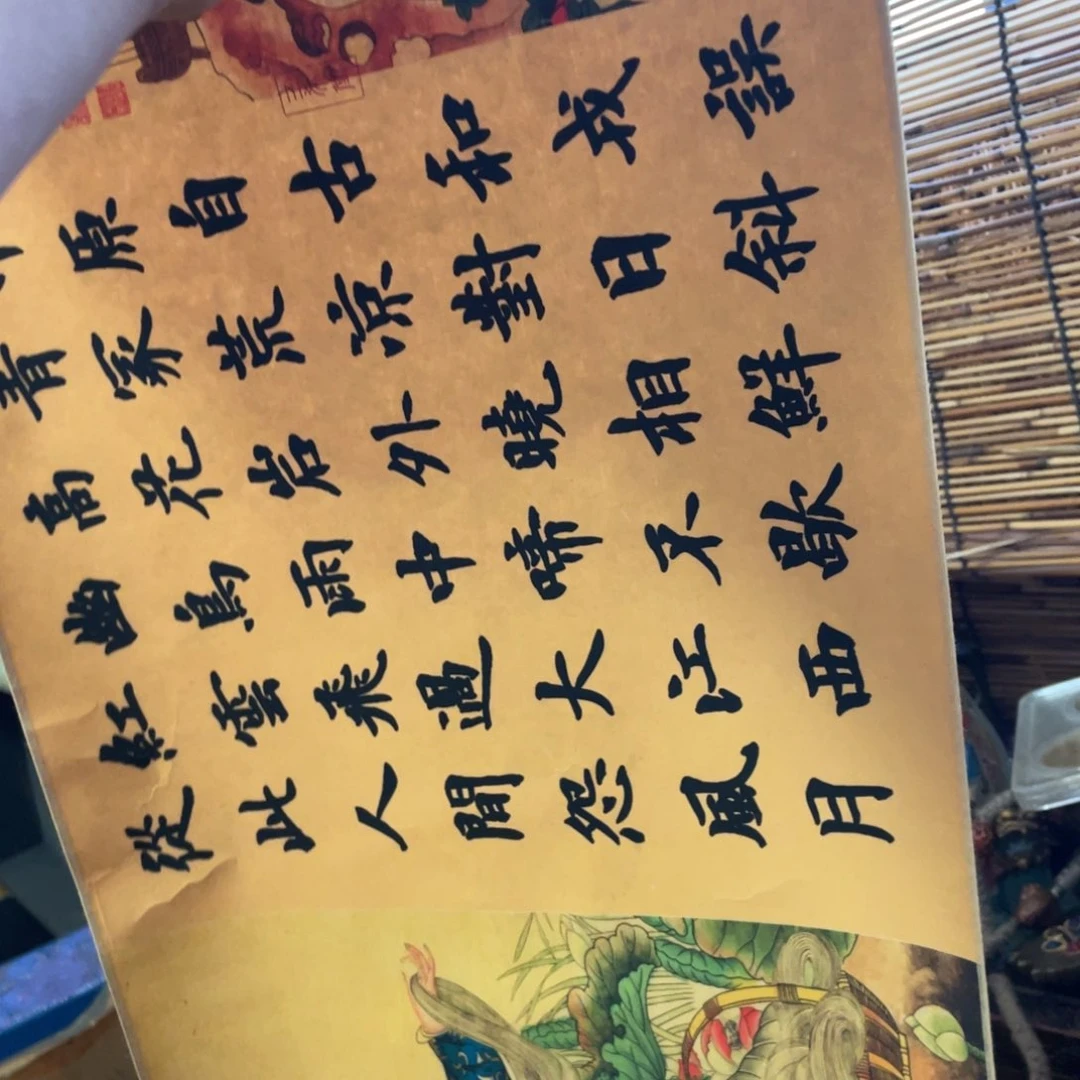 原自古和戎誤
青冢荒涼對日斜
高花岩外曉相鮮
幽鳥雨中啼不歇
紅雲飛過大江西
從此人間怨風月